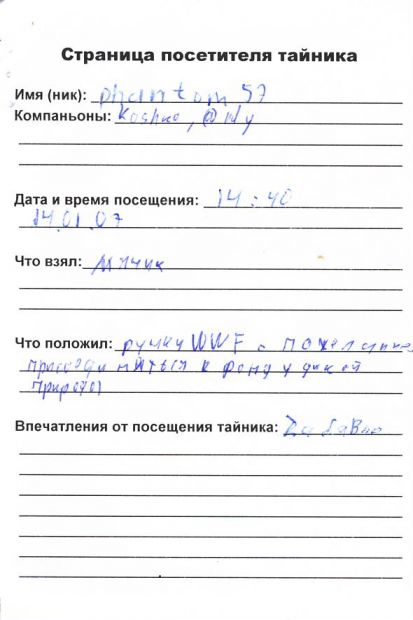 Страница посетителя тайника
Имя (ник): phantom 57
Компаньоны: Koshka, @lly
Дата и время посещения: 14:40
14.01.07
Что взял: мячик
Что положил: ручку WWF с пожеланием
присоединяться к фонду дикой
природы
Впечатления от посещения тайника: Забавно